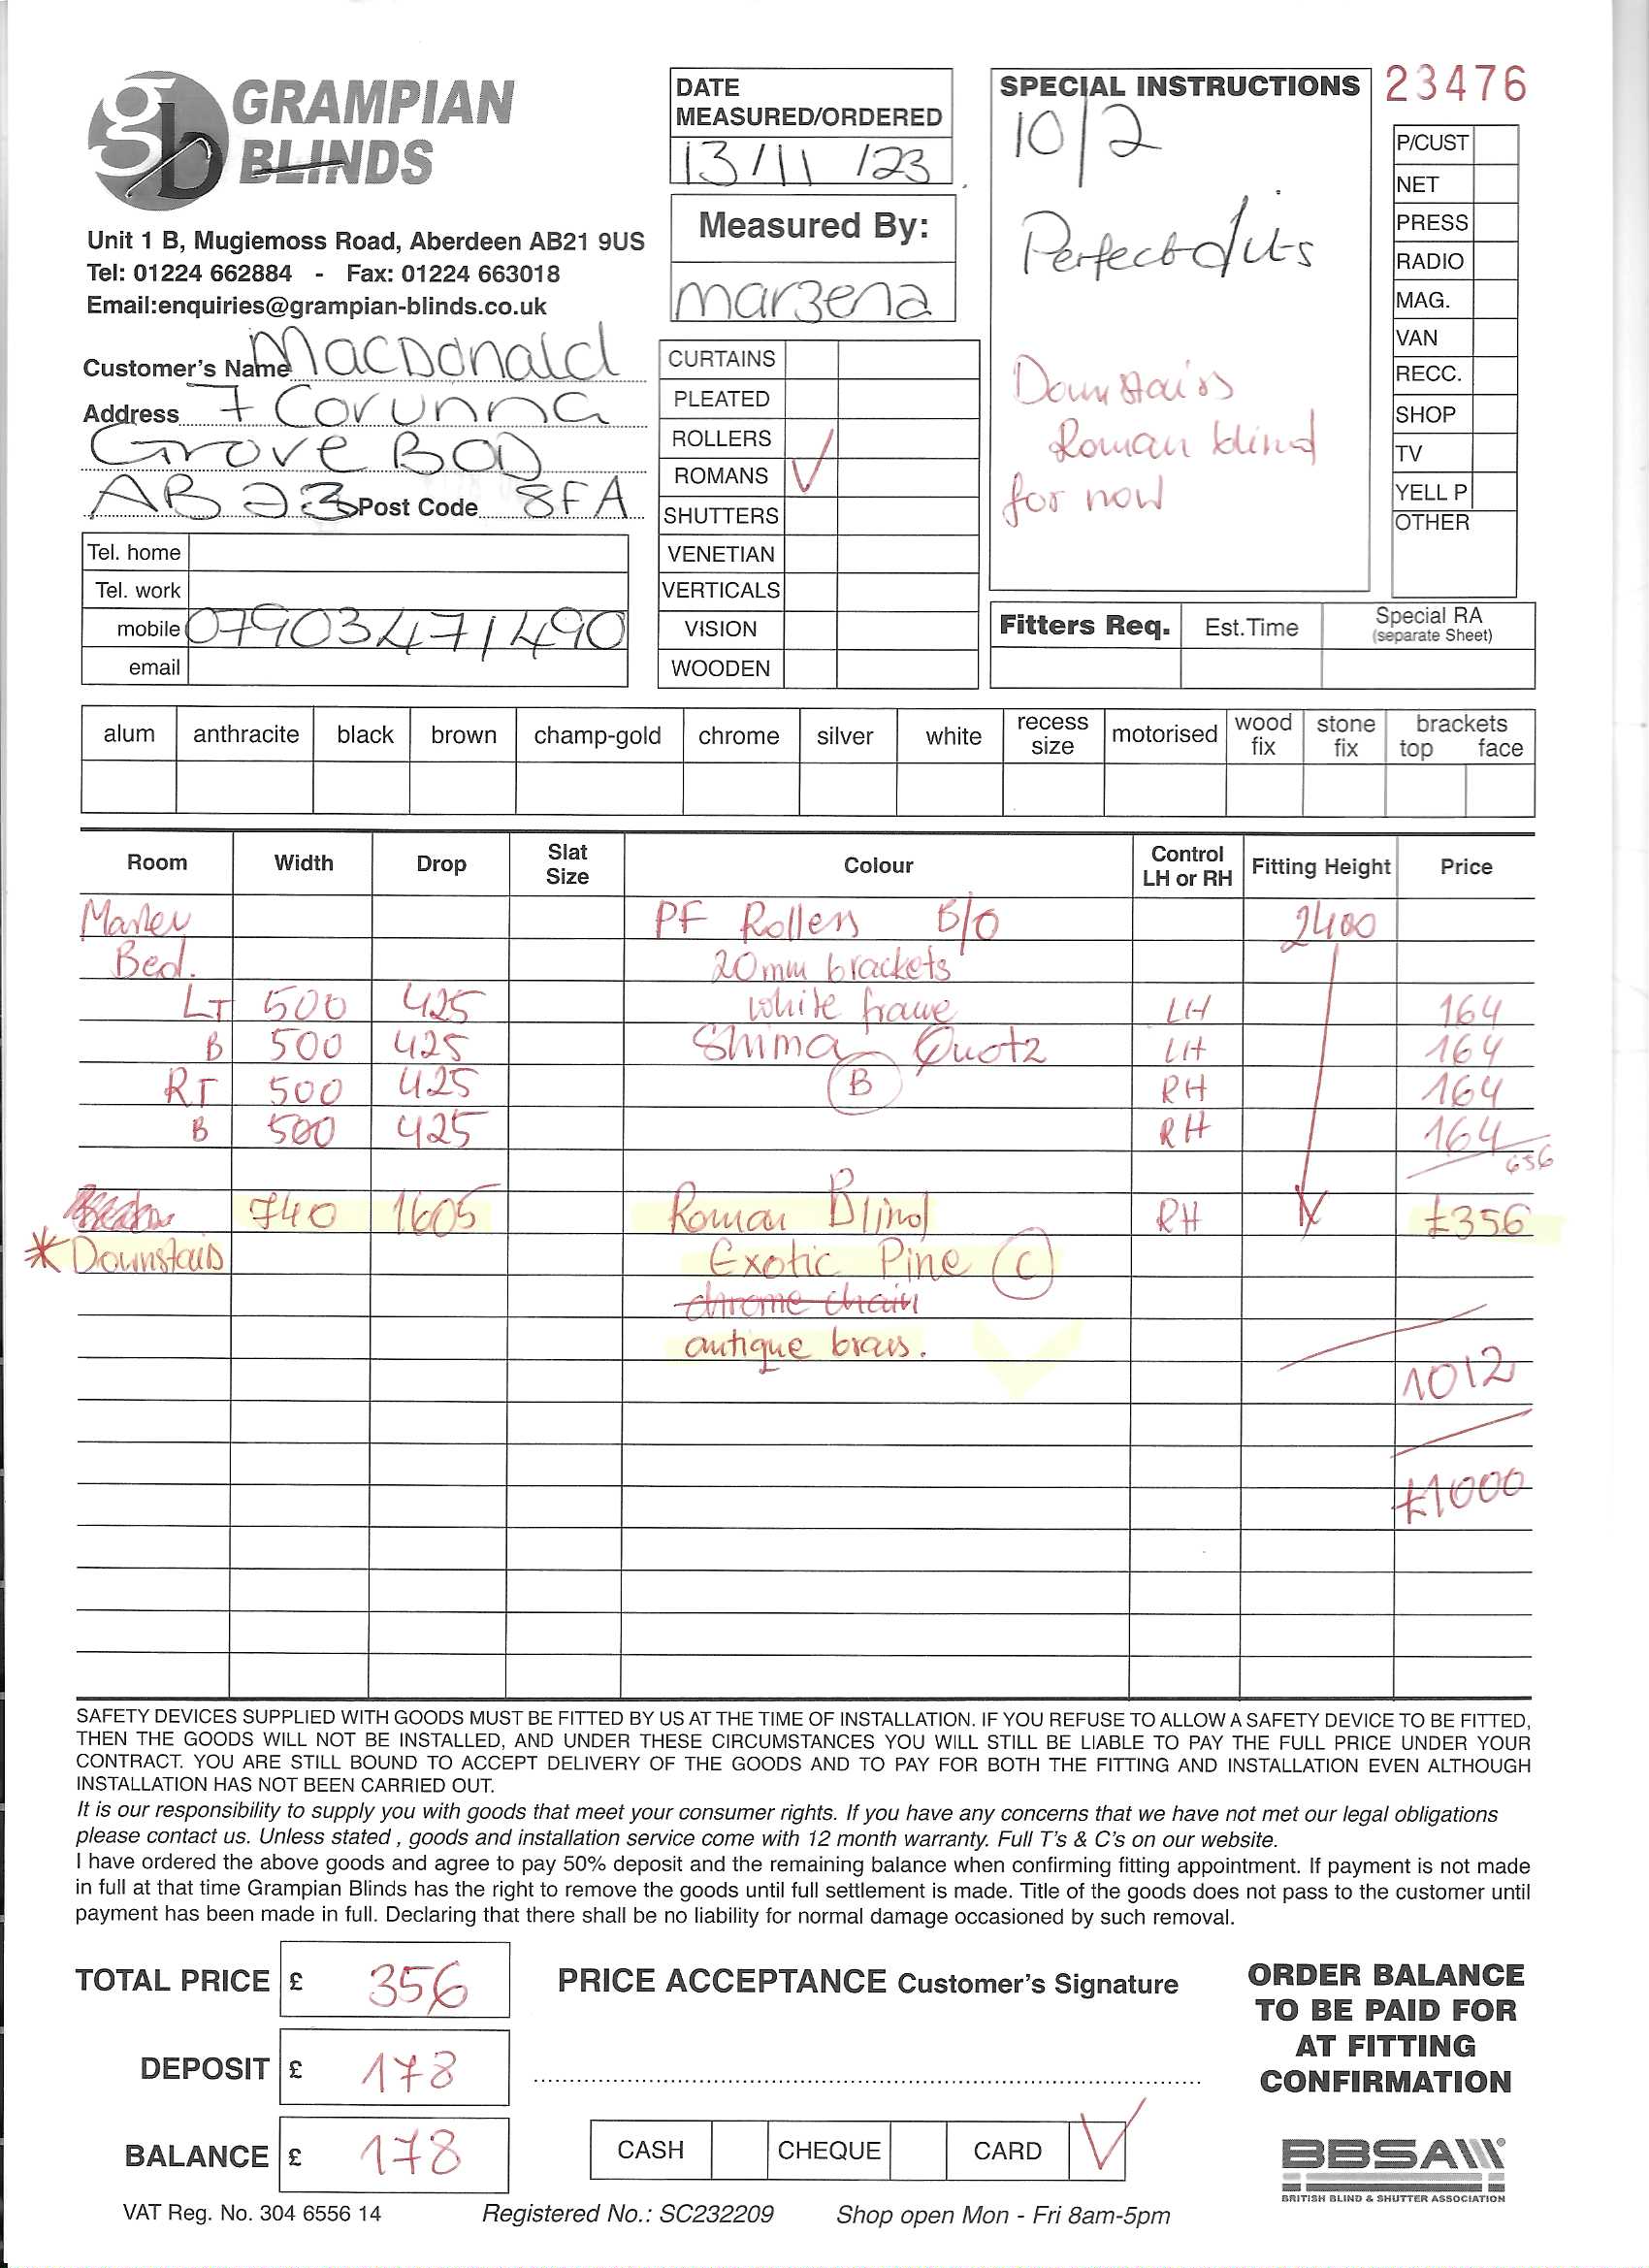 gb GRAMPIAN
BLINDS
Unit 1 B, Mugiemoss Road, Aberdeen AB21 9US
Tel: 01224 662884 - Fax: 01224 663018
Email:enquiries@grampian-blinds.co.uk
Customer's Name MacDonald
Address 7 Corunna
Grove BOD
AB23 Post Code 8FA
Tel. home
Tel. work
mobile 07903471490
email
DATE
MEASURED/ORDERED
13/11/23
Measured By:
marzena
CURTAINS
PLEATED
ROLLERS
ROMANS ✓
SHUTTERS
VENETIAN
VERTICALS
VISION
WOODEN
SPECIAL INSTRUCTIONS
10/2
Perfect fits
Downstairs
Roman blind
for now
23476
P/CUST
NET
PRESS
RADIO
MAG.
VAN
RECC.
SHOP
TV
YELL P
OTHER
Fitters Req. Est.Time Special RA
(separate Sheet)
alum anthracite black brown champ-gold chrome silver white recess size motorised wood fix stone fix brackets top face
Room Width Drop Slat Size Colour Control LH or RH Fitting Height Price
Master PF Rollers B/O 2400
Bed. 20mm brackets
LT 500 425 white frame LH 164
B 500 425 Shima Quotz LH 164
RT 500 425 B RH 164
B 500 425 RH 164
656
740 1605 Roman Blind RH £356
* Downstairs Exotic Pine C
chrome chain
antique brass.
1012
£1000
SAFETY DEVICES SUPPLIED WITH GOODS MUST BE FITTED BY US AT THE TIME OF INSTALLATION. IF YOU REFUSE TO ALLOW A SAFETY DEVICE TO BE FITTED,
THEN THE GOODS WILL NOT BE INSTALLED, AND UNDER THESE CIRCUMSTANCES YOU WILL STILL BE LIABLE TO PAY THE FULL PRICE UNDER YOUR
CONTRACT. YOU ARE STILL BOUND TO ACCEPT DELIVERY OF THE GOODS AND TO PAY FOR BOTH THE FITTING AND INSTALLATION EVEN ALTHOUGH
INSTALLATION HAS NOT BEEN CARRIED OUT.
It is our responsibility to supply you with goods that meet your consumer rights. If you have any concerns that we have not met our legal obligations
please contact us. Unless stated , goods and installation service come with 12 month warranty. Full T's & C's on our website.
I have ordered the above goods and agree to pay 50% deposit and the remaining balance when confirming fitting appointment. If payment is not made
in full at that time Grampian Blinds has the right to remove the goods until full settlement is made. Title of the goods does not pass to the customer until
payment has been made in full. Declaring that there shall be no liability for normal damage occasioned by such removal.
TOTAL PRICE £ 356
DEPOSIT £ 178
BALANCE £ 178
PRICE ACCEPTANCE Customer's Signature
CASH CHEQUE CARD ✓
ORDER BALANCE
TO BE PAID FOR
AT FITTING
CONFIRMATION
BBSA
BRITISH BLIND & SHUTTER ASSOCIATION
VAT Reg. No. 304 6556 14 Registered No.: SC232209 Shop open Mon - Fri 8am-5pm